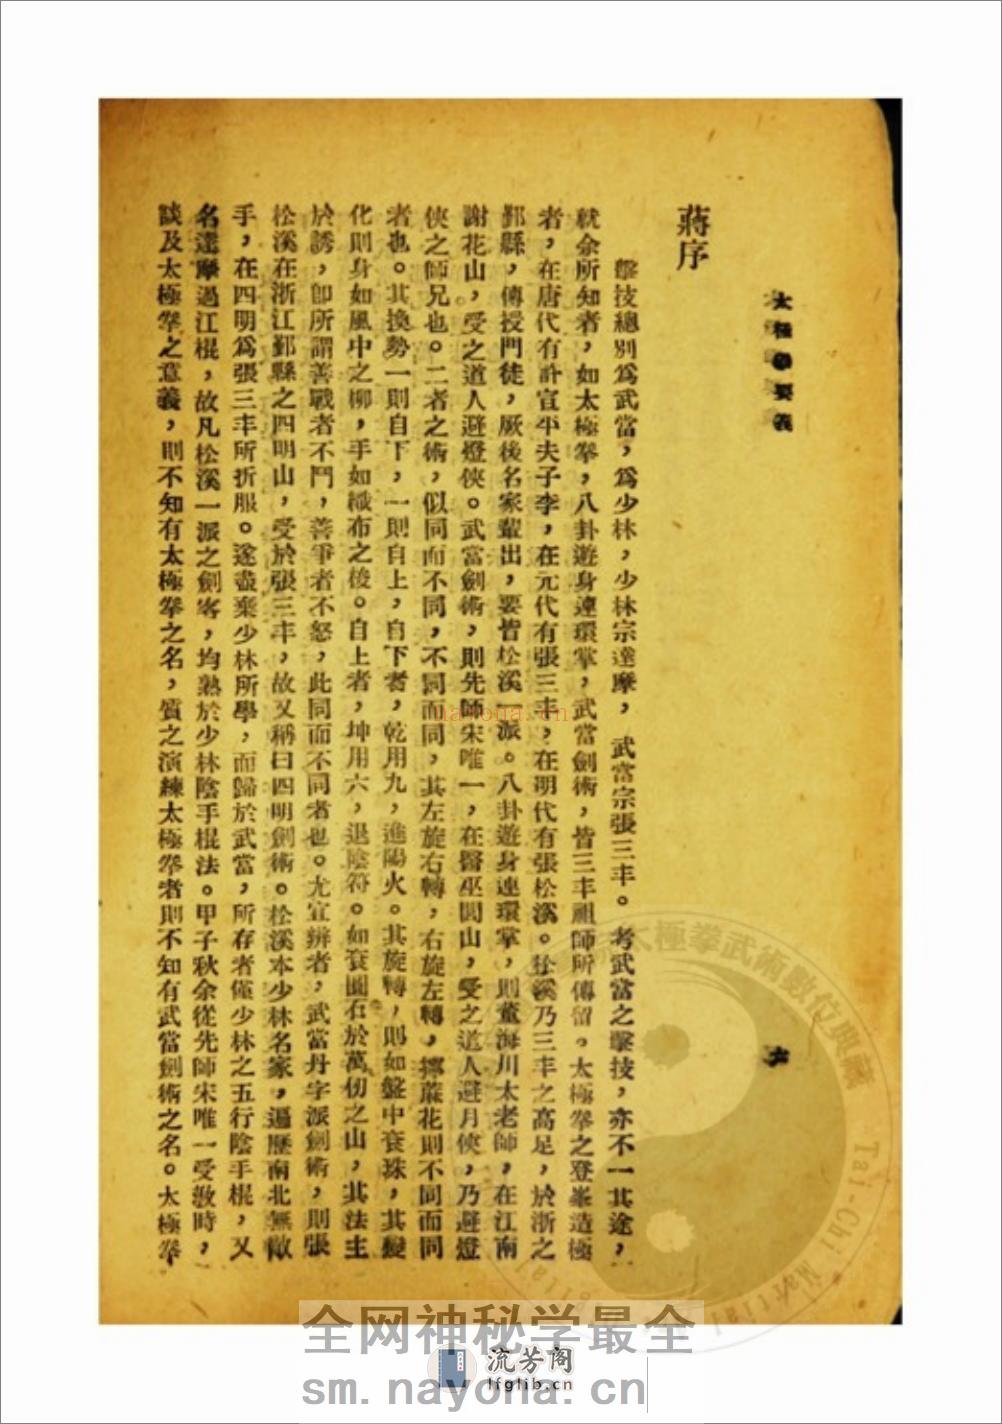 太極拳要義
六
蔣序
擊技總別爲武當，爲少林，少林宗達摩，武當宗張三丰。考武當之擊技，亦不一其途，
就余所知者，如太極拳，八卦遊身連環掌，武當劍術，皆三丰祖師所傳留。太極拳之登峯造極
者，在唐代有許宣平夫子李，在元代有張三丰，在明代有張松溪。松溪乃三丰之高足，於浙之
鄞縣，傳授門徒，厥後名家輩出，要皆松溪一派。八卦遊身連環掌，則董海川太老師，在江南
謝花山，受之道人避燈俠。武當劍術，則先師宋唯一，在醫巫閭山，受之道人避月俠，乃避燈
俠之師兄也。二者之術，似同而不同，不同而同，其左旋右轉，右旋左轉，擰蔴花則不同而同
者也。其換勢一則自下，一則自上，自下者，乾用九，進陽火。其旋轉，則如盤中袞珠，其變
化則身如風中之柳，手如織布之梭。自上者，坤用六，退陰符。如袞圜石於萬仞之山，其法主
於誘，卽所謂善戰者不鬥，善爭者不怒，此同而不同者也。尤宜辨者，武當丹字派劍術，則張
松溪在浙江鄞縣之四明山，受於張三丰，故又稱曰四明劍術。松溪本少林名家，遍歷南北無敵
手，在四明爲張三丰所折服。遂盡棄少林所學，而歸於武當，所存者僅少林之五行陰手棍，又
名達摩過江棍，故凡松溪一派之劍客，均熟於少林陰手棍法。甲子秋余從先師宋唯一受敎時，
談及太極拳之意義，則不知有太極拳之名，質之演練太極拳者則不知有武當劍術之名。太極拳，
太極拳武術數位典藏 Tai-Chi Martial
nayona.cn
全网神秘学最全
流芳阁
lfglib.cn
sm.nayona.cn